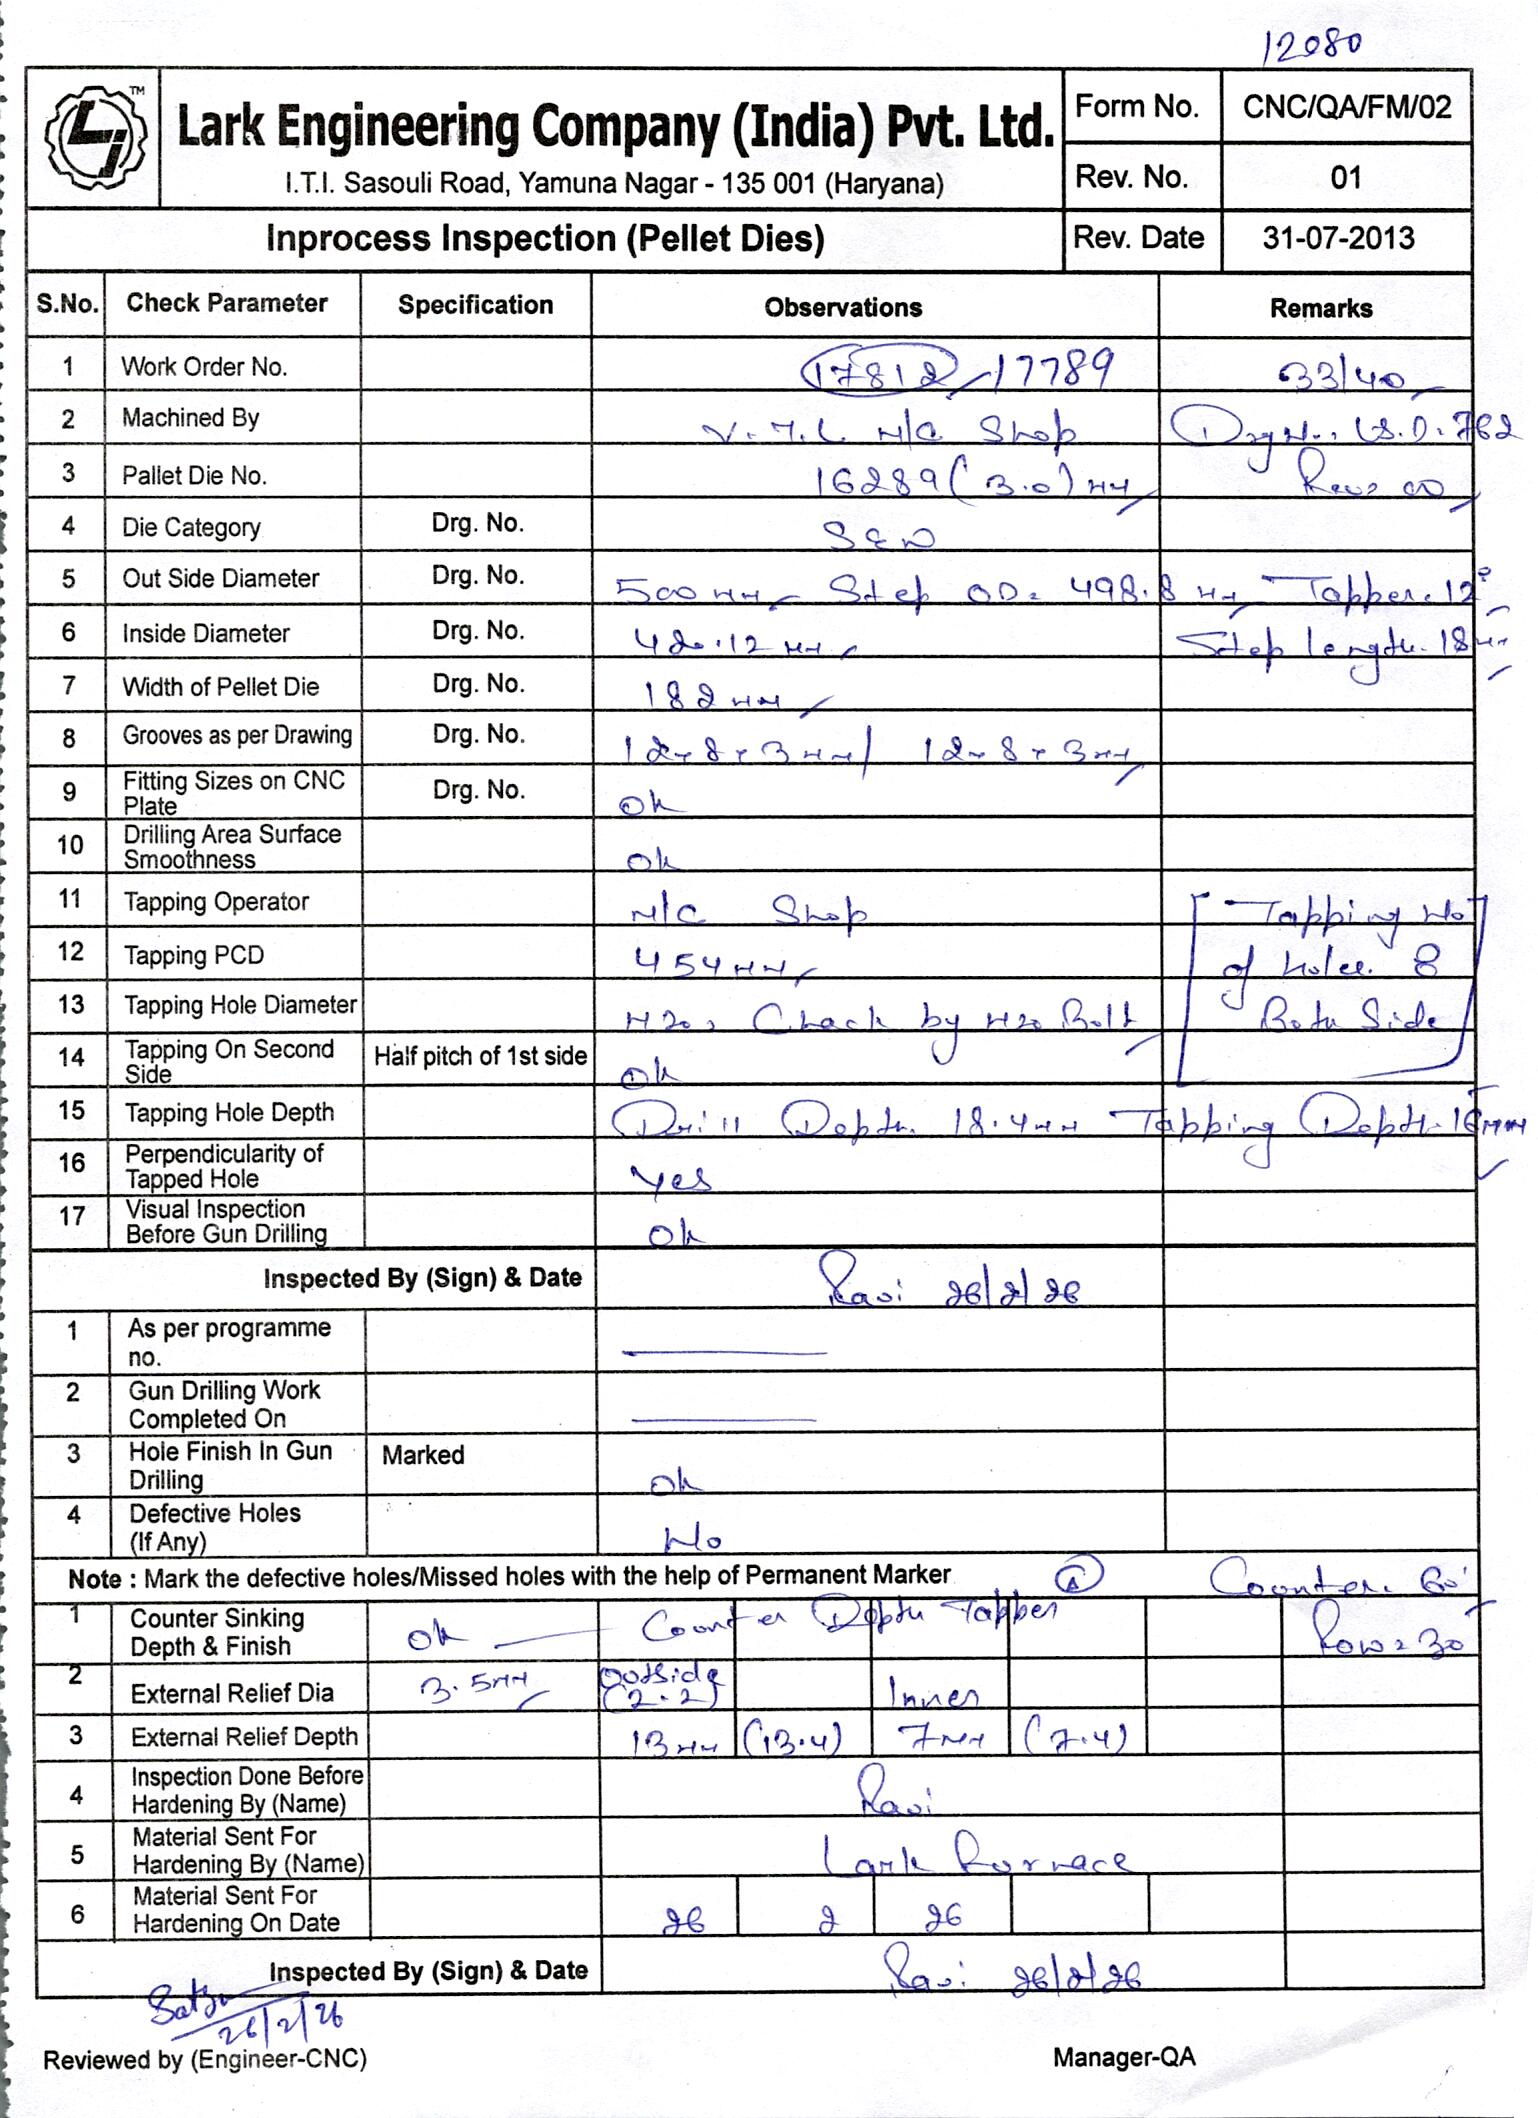 12080
TM
Lark Engineering Company (India) Pvt. Ltd.
I.T.I. Sasouli Road, Yamuna Nagar - 135 001 (Haryana)
Form No. CNC/QA/FM/02
Rev. No. 01
Inprocess Inspection (Pellet Dies) Rev. Date 31-07-2013
S.No. Check Parameter Specification Observations Remarks
1 Work Order No. 17812/17789 33/40
2 Machined By V.T.L M/C Shop Drg No: LS.D. 762
3 Pallet Die No. 16289 (3.0) MM Rev: 00
4 Die Category Drg. No. S&W
5 Out Side Diameter Drg. No. 500 MM Step OD. 498.8 MM Tapper. 12°
6 Inside Diameter Drg. No. 420.12 MM Step length. 18 MM
7 Width of Pellet Die Drg. No. 182 MM
8 Grooves as per Drawing Drg. No. 12x8x3 MM/ 12x8x3 MM
9 Fitting Sizes on CNC Plate Drg. No. Ok
10 Drilling Area Surface Smoothness Ok
11 Tapping Operator M/C Shop Tapping No
12 Tapping PCD 454 MM of holes. 8
13 Tapping Hole Diameter M20, Check by M20 Bolt Both Side
14 Tapping On Second Side Half pitch of 1st side Ok
15 Tapping Hole Depth Drill Depth. 18.4 MM Tapping Depth. 16 MM
16 Perpendicularity of Tapped Hole Yes
17 Visual Inspection Before Gun Drilling Ok
Inspected By (Sign) & Date Ravi 26/2/26
1 As per programme no.
2 Gun Drilling Work Completed On
3 Hole Finish In Gun Drilling Marked Ok
4 Defective Holes (If Any) No
Note : Mark the defective holes/Missed holes with the help of Permanent Marker A Counter. 60°
1 Counter Sinking Depth & Finish Ok Counter Depth Tapper Row = 30
2 External Relief Dia 3.5 MM Outside (2.2) Inner
3 External Relief Depth 13 MM (13.4) 7 MM (7.4)
4 Inspection Done Before Hardening By (Name) Ravi
5 Material Sent For Hardening By (Name) Lark Furnace
6 Material Sent For Hardening On Date 26 2 26
Inspected By (Sign) & Date Ravi 26/2/26
26/2/26
Reviewed by (Engineer-CNC) Manager-QA